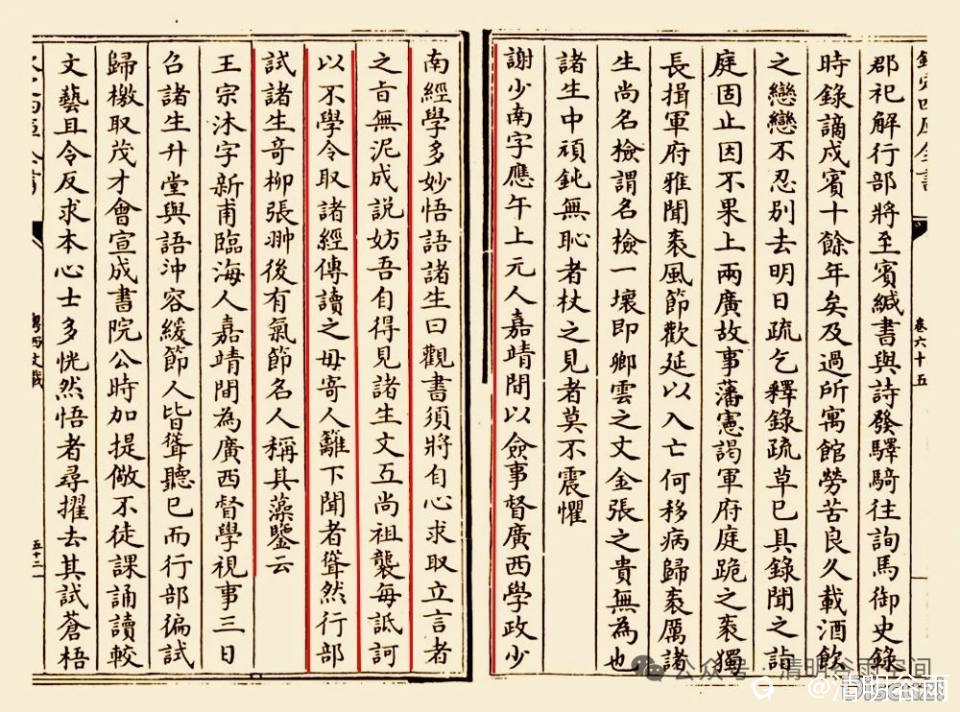 郡祀解行部將至賓緘書與詩發驛騎往詢馬御史錄
時錄謫戍賓十餘年矣及過所寓館勞苦良久載酒飲
之戀戀不忍別去明日疏乞釋錄疏草已具錄聞之詣
庭固止因不果上兩廣故事藩憲謁軍府庭跪之袠獨
長揖軍府雅聞袠風節歡延以入亡何移病歸袠厲諸
生尚名檢謂名檢一壞即卿雲之文金張之貴無為也
諸生中頑鈍無恥者杖之見者莫不震懼
謝少南字應午上元人嘉靖間以僉事督廣西學政少
卷六十五
南經學多妙悟語諸生曰觀書須將自心求取立言者
之旨無泥成說妨吾自得見諸生文互尚祖襲每詆訶
以不學令取諸經傳讀之毋寄人籬下聞者聳然行部
試諸生奇柳張翀後有氣節名人稱其藻鑒云
王宗沐字新甫臨海人嘉靖間為廣西督學視事三日
召諸生升堂與語沖容緩節人皆聳聽已而行部徧試
歸檄取茂才會宣成書院公時加提儆不徒課誦讀較
文藝且令反求本心士多恍然悟者尋擢去其試蒼梧
五十三
公众号·清明谷雨空间
@清明谷雨